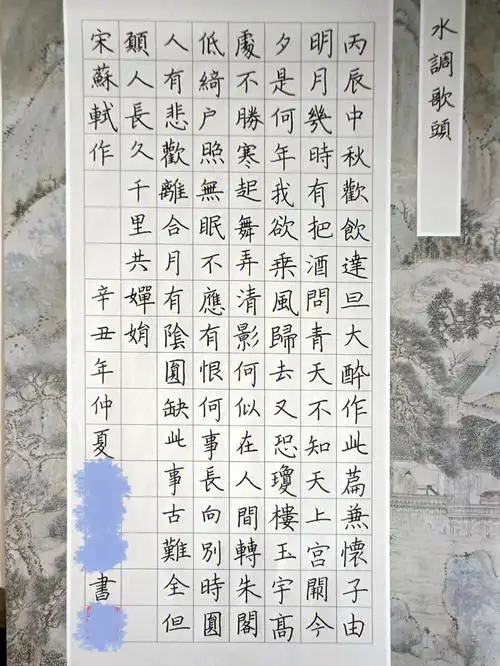 水調歌頭
丙辰中秋歡飲達旦大醉作此篇兼懷子由
明月幾時有把酒問青天不知天上宮闕今
夕是何年我欲乘風歸去又恐瓊樓玉宇高
處不勝寒起舞弄清影何似在人間轉朱閣
低綺户照無眠不應有恨何事長向別時圓
人有悲歡離合月有陰圓缺此事古難全但
願人長久千里共嬋娟
宋蘇軾作 辛丑年仲夏 書